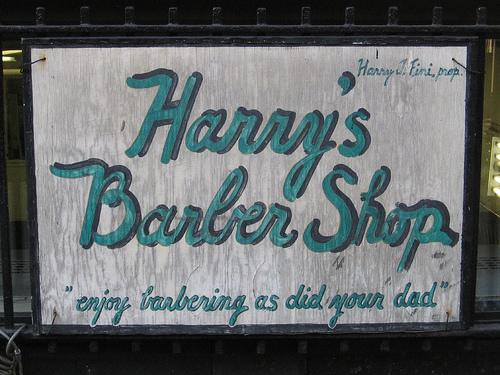 Harry J. Fini, prop.
Harry's
Barber Shop
"enjoy barbering as did your dad"